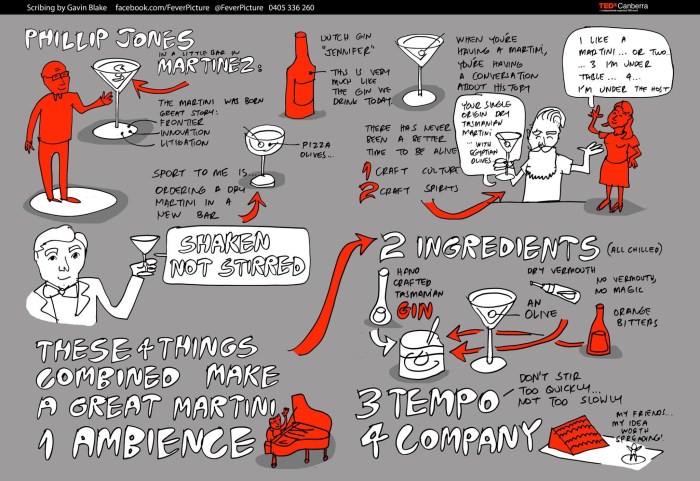 Scribing by Gavin Blake facebook.com/FeverPicture @FeverPicture 0405 336 260
TEDx Canberra
PHILLIP JONES
IN A LITTLE BAR IN
MARTINEZ:
THE MARTINI WAS BORN
GREAT STORY:
FRONTIER
INNOVATION
LITIGATION
SPORT TO ME IS...
ORDERING A DRY
MARTINI IN A
NEW BAR
DUTCH GIN
"JENNIFER"
THIS IS VERY
MUCH LIKE
THE GIN WE
DRINK TODAY.
PIZZA
OLIVES...
WHEN YOU'RE
HAVING A MARTINI,
YOU'RE HAVING
A CONVERSATION
ABOUT HISTORY
THERE HAS NEVER
BEEN A BETTER
TIME TO BE ALIVE
1 CRAFT CULTURE
2 CRAFT SPIRITS
YOUR SINGLE
ORIGIN DRY
TASMANIAN
MARTINI
... WITH
EGYPTIAN
OLIVES
I LIKE A
MARTINI... OR TWO
... 3 I'M UNDER
TABLE... 4...
I'M UNDER THE HOST
SHAKEN
NOT STIRRED
THESE 4 THINGS
COMBINED MAKE
A GREAT MARTINI
1 AMBIENCE
2 INGREDIENTS (ALL CHILLED)
HAND
CRAFTED
TASMANIAN
GIN
AN
OLIVE
DRY VERMOUTH
NO VERMOUTH,
NO MAGIC
ORANGE
BITTERS
3 TEMPO
DON'T STIR
TOO QUICKLY...
NOT TOO SLOWLY
4 COMPANY
MY FRIENDS...
MY IDEA
WORTH
SPREADING!